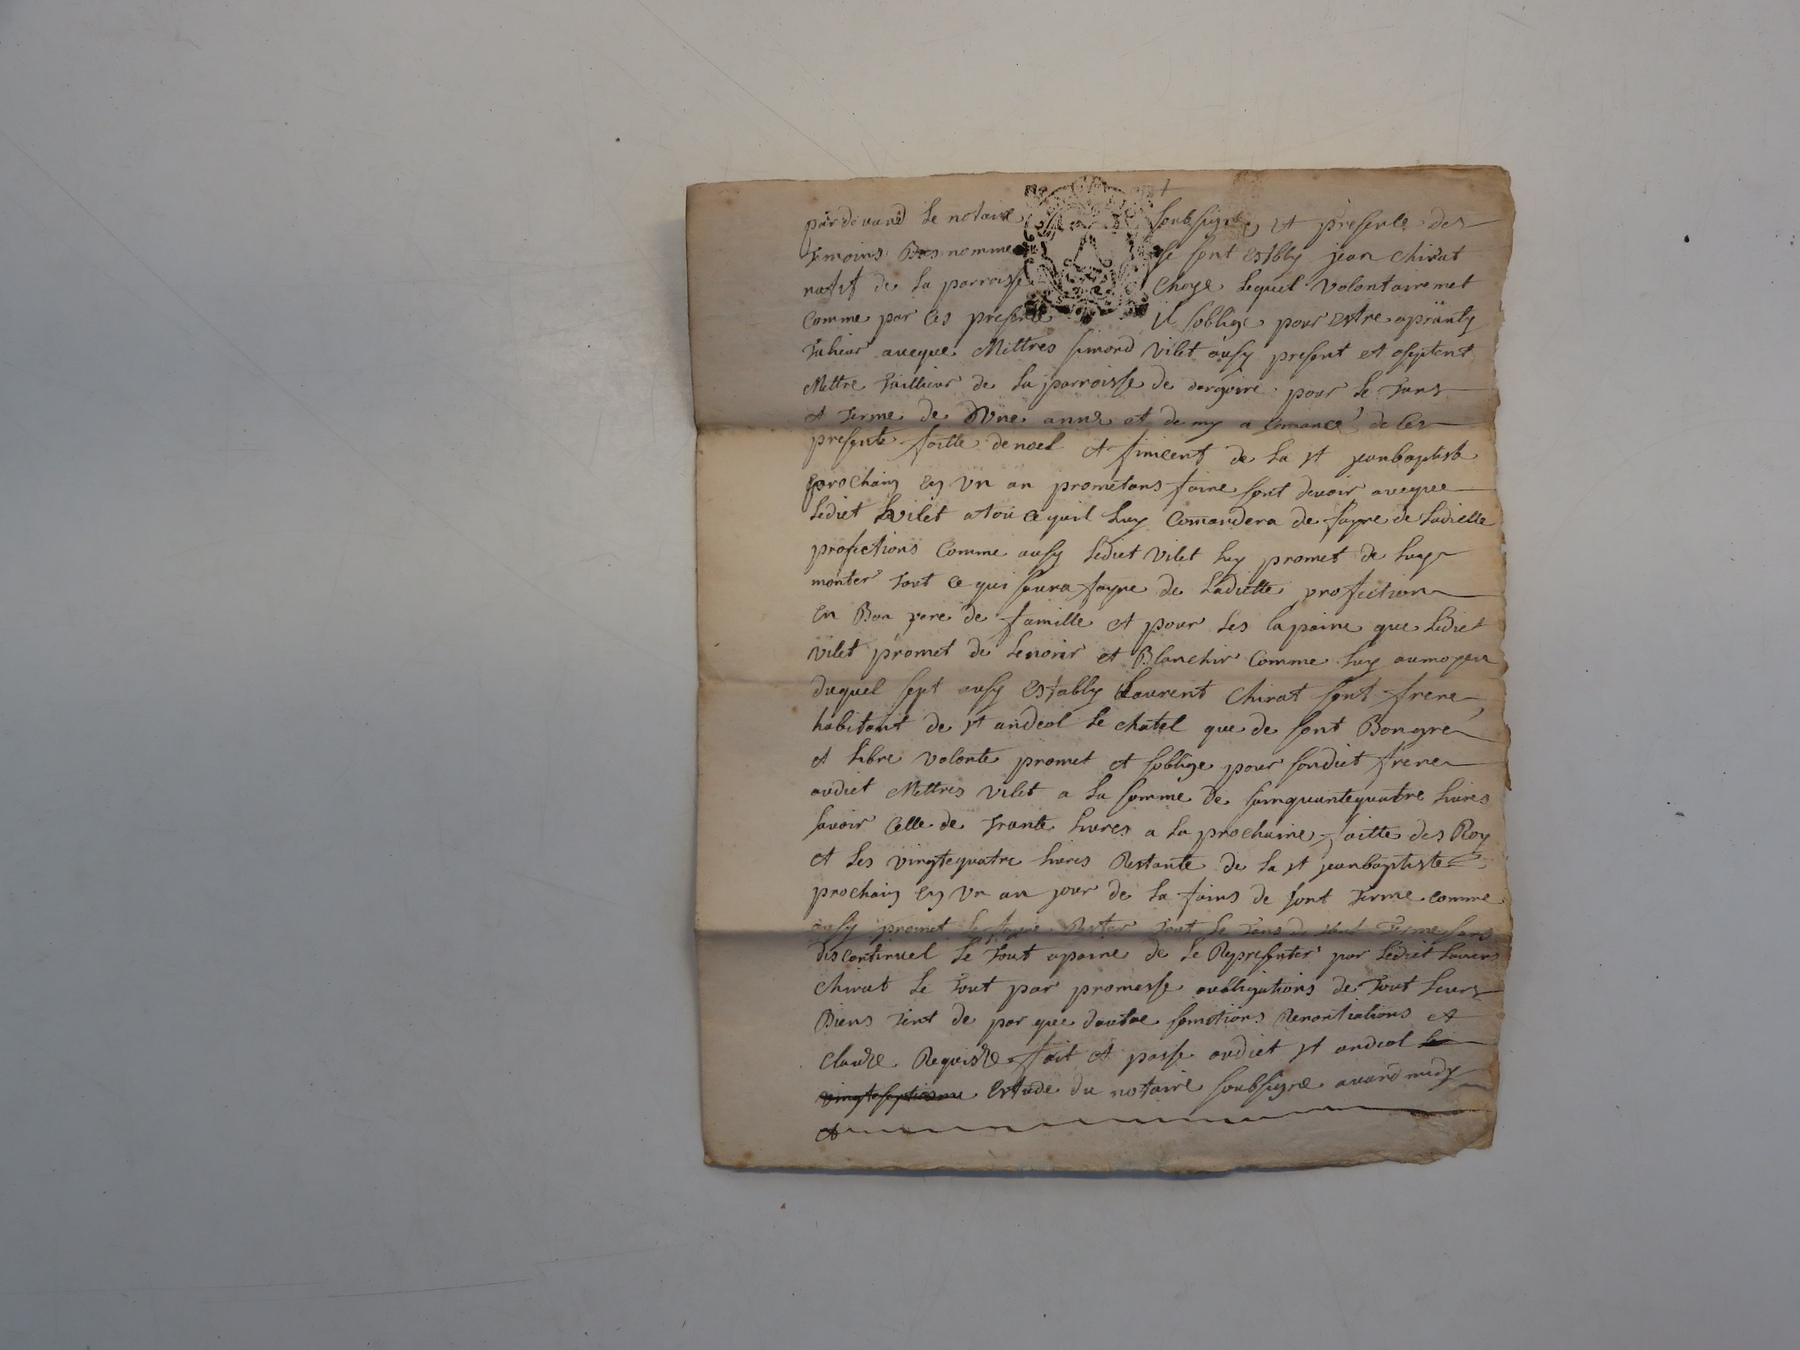 pardevand le notaire soubsigne et presente des
temoins Bas nomme se sont estbly jean chirat
natif de la parroisse choye lequel volontairemet
comme par ces presente il soblige pour estre aprantis
talieur aveque Mettres simond vilet ausy present et aseptent
Mettre taillieur de la parroisse de dargoire pour le tans
et terme de d'une anne et demy a comance de les
presente faitte de noel et finicent de la st jean baptiste
prochain en un an prometans faire sont devoir aveque
ledict vilet a tou ce quil luy comandera de fayre de ladictte
profictions comme ausy ledict vilet luy promet de luy
monter tout ce qui saura fayre de ladictte profiction
en Bon pere de famille et pour les la paine que ledict
vilet promet de le norir et Blanchir comme luy au moyen
duquel sept ausy establly Laurent chirat sont frere
habitant de st andeol le chatel que de sont Bongre
et libre volonte promet et soblige pour sondict frere
audict Mettres vilet a la somme de sainquantequatre livres
savoir celle de trante livres a la prochaine faitte des Roy
et les vingtequatre livres Restante de la st jean baptiste
prochain en un an jour de la fains de sont terme comme
ausy promet le fayre Rester tout le tans du dict terme sans
discontinuel le tout a paine de le Representer par ledict Lauren
chirat le tout par promesse oubligations de tout leurs
Biens tent de par que dautre somotions Renontiations et
clauze Requise fait et passe audict st andeol le
vingtseptiesme estude du notaire soubsigne avand midy
et